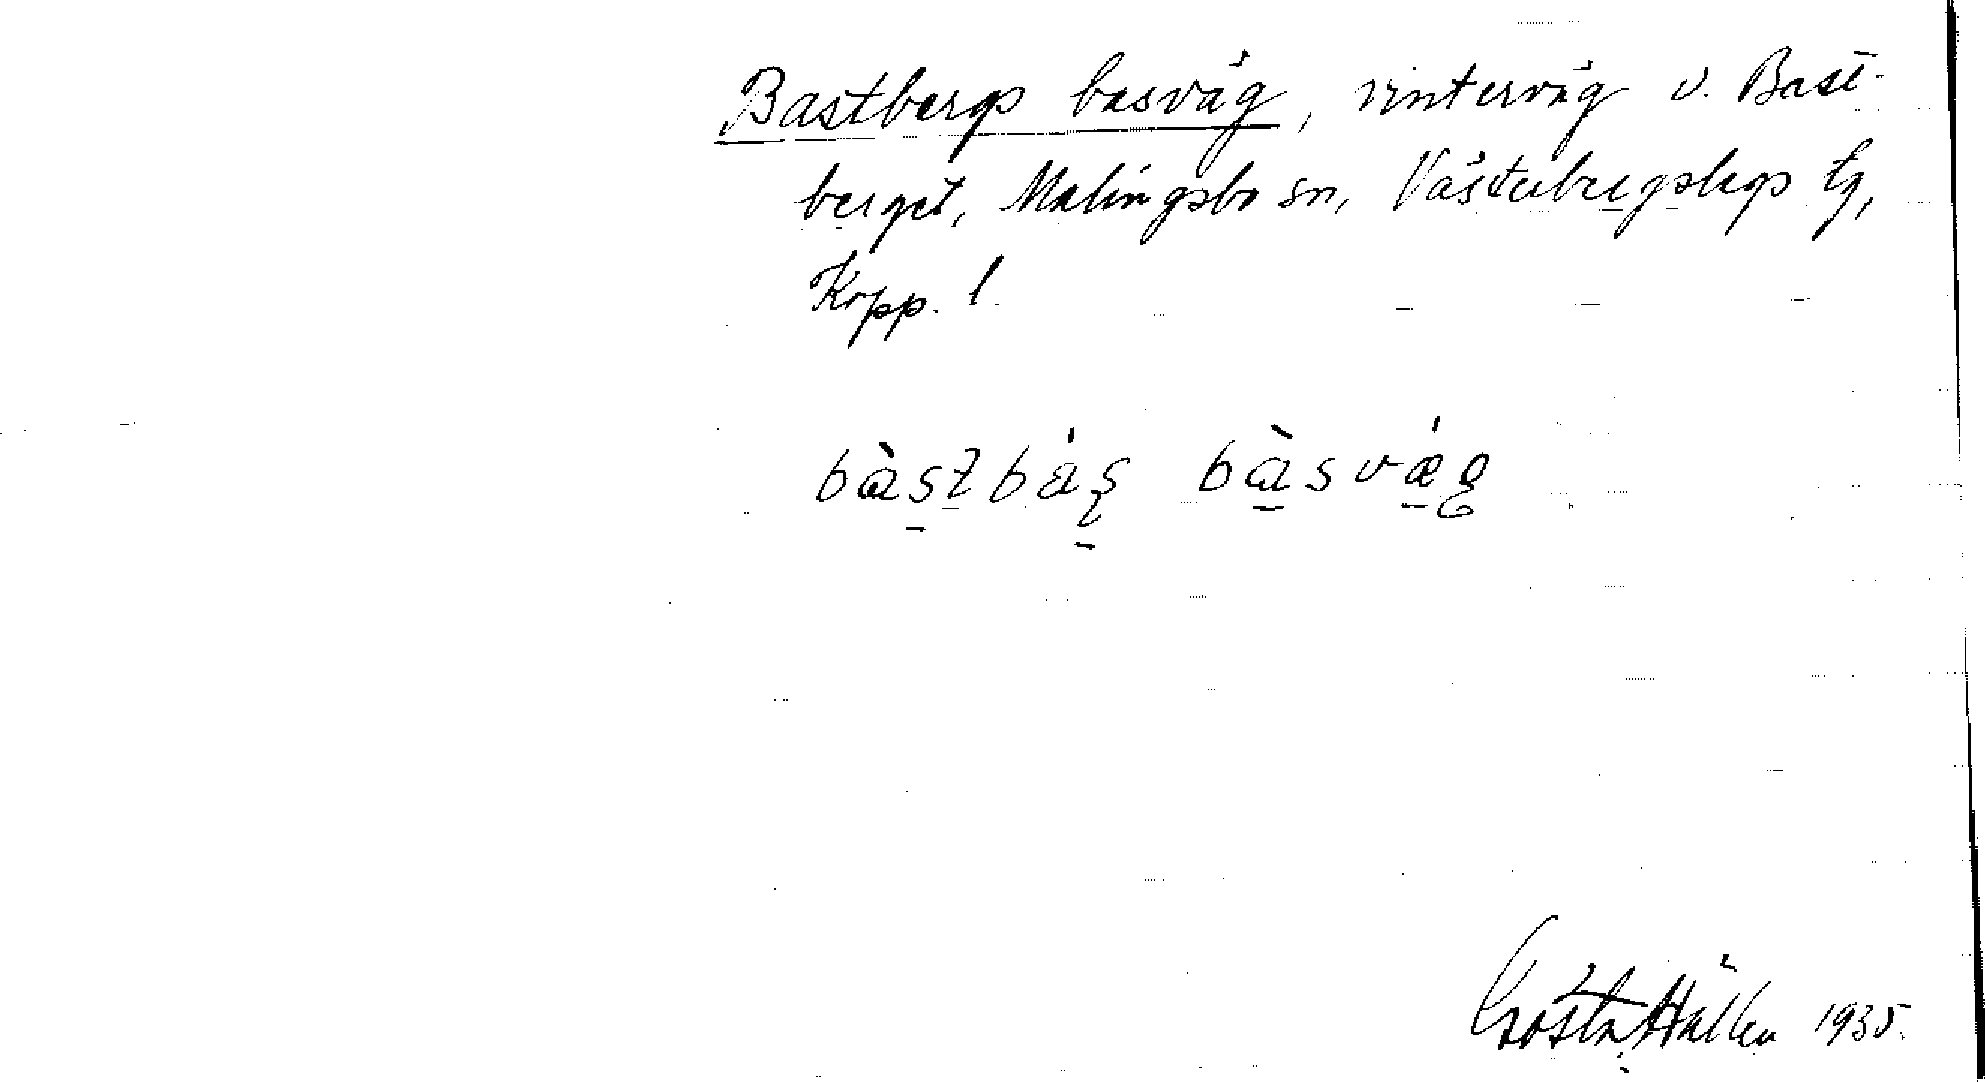 Bastbergs basväg, vinterväg v. Bast-
berget, Malingsbo sn, Västerbergslags tg,
Kopp. l.
bàstbás bàsvǽg
Gösta Hallen 1935.